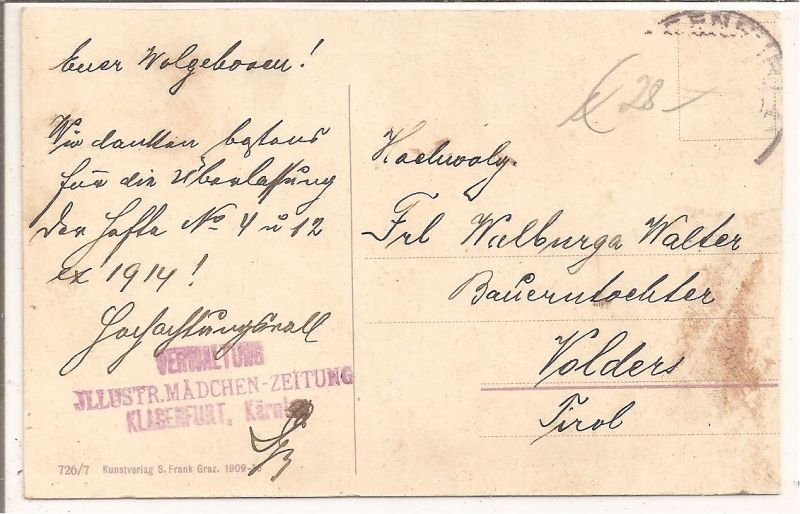 Euer Wolgeboren!
Wir danken bestens
für die Überlassung
der Hefte No 4 u 12
ex 1914!
Hochachtungsvoll
VERWALTUNG
JLLUSTR.MÄDCHEN-ZEITUNG
KLAGENFURT, Kärnten
726/7 Kunstverlag S. Frank Graz. 1909-
28
Hochwolg.
Frl Walburga Walter
Bauerntochter
Volders
Tirol